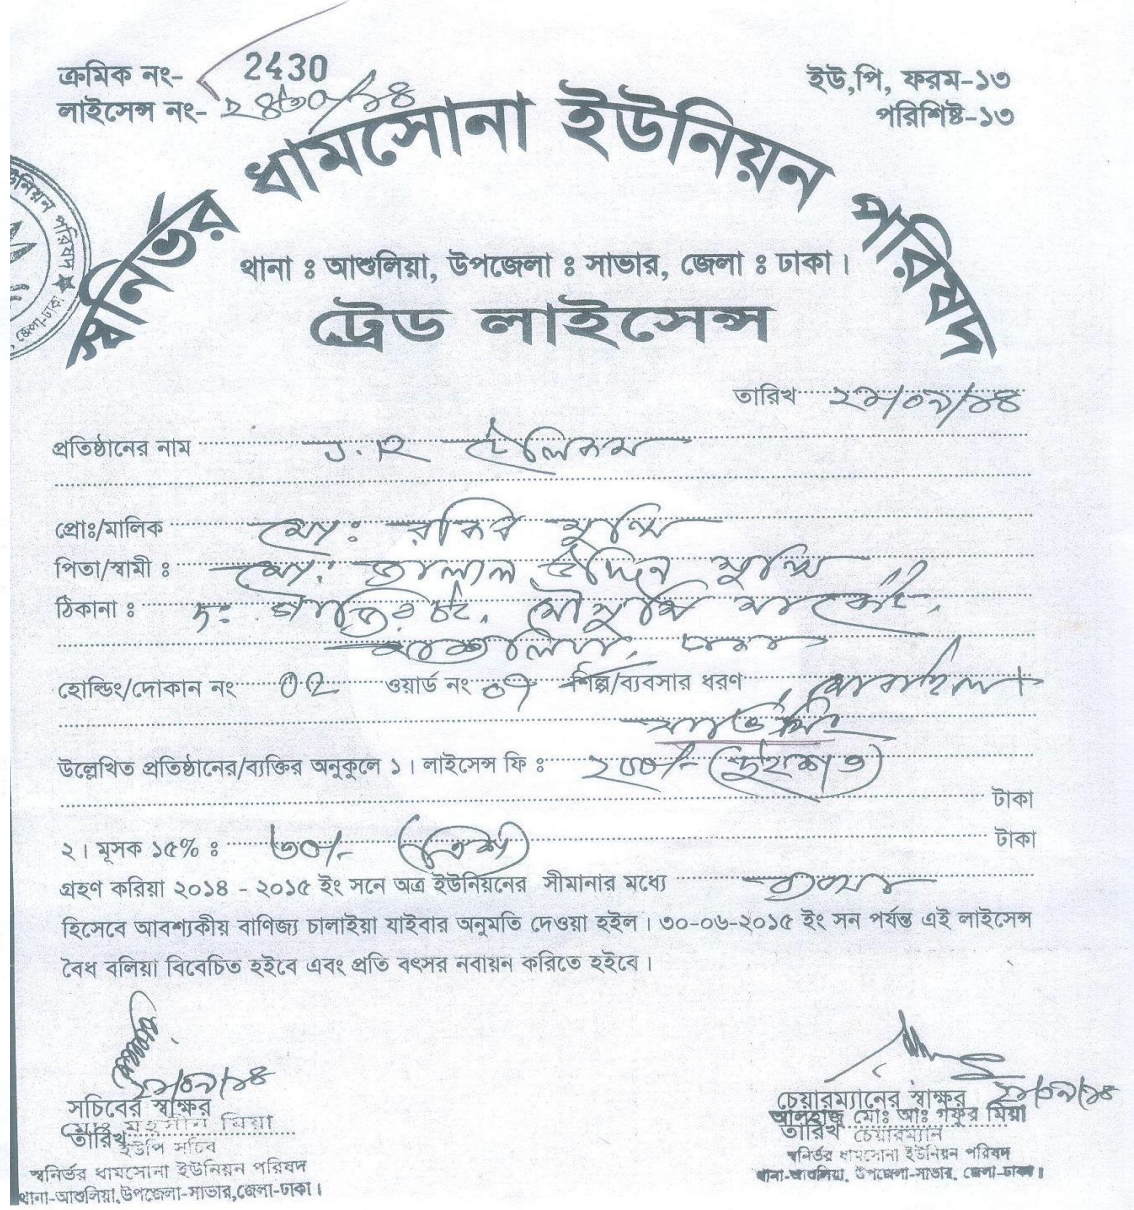 ক্রমিক নং- 2430
লাইসেন্স নং- ২৪৩০/১৪
ইউ,পি, ফরম-১৩
পরিশিষ্ট-১৩
স্বনির্ভর ধামসোনা ইউনিয়ন পরিষদ
থানা ঃ আশুলিয়া, উপজেলা ঃ সাভার, জেলা ঃ ঢাকা।
ট্রেড লাইসেন্স
তারিখ ২১/০৯/১৪
প্রতিষ্ঠানের নাম J.R টেলিকম
প্রোঃ/মালিক মোঃ রকিব মুন্সি
পিতা/স্বামী ঃ মোঃ উদ্দিন মুন্সি
ঠিকানা ঃ দঃ মৌসুমি মার্কেট,
আশুলিয়া, ঢাকা
হোল্ডিং/দোকান নং ০২ ওয়ার্ড নং ০৭ শিল্প/ব্যবসার ধরণ মোবাইল
সার্ভিসিং
উল্লেখিত প্রতিষ্ঠানের/ব্যক্তির অনুকুলে ১। লাইসেন্স ফি ঃ ২০০/- (দুইশত)
টাকা
২। মূসক ১৫% ঃ ৩০/- (ত্রিশ) টাকা
গ্রহণ করিয়া ২০১৪ - ২০১৫ ইং সনে অত্র ইউনিয়নের সীমানার মধ্যে ব্যবসা
হিসেবে আবশ্যকীয় বাণিজ্য চালাইয়া যাইবার অনুমতি দেওয়া হইল। ৩০-০৬-২০১৫ ইং সন পর্যন্ত এই লাইসেন্স
বৈধ বলিয়া বিবেচিত হইবে এবং প্রতি বৎসর নবায়ন করিতে হইবে।
২১/০৯/১৪
সচিবের স্বাক্ষর
মোঃ মহসীন মিয়া
তারিখ
ইউপি সচিব
স্বনির্ভর ধামসোনা ইউনিয়ন পরিষদ
থানা-আশুলিয়া,উপজেলা-সাভার,জেলা-ঢাকা।
চেয়ারম্যানের স্বাক্ষর ২১/০৯/১৪
আলহাজ্ব মোঃ আঃ গফুর মিয়া
তারিখ চেয়ারম্যান
স্বনির্ভর ধামসোনা ইউনিয়ন পরিষদ
থানা-আশুলিয়া, উপজেলা-সাভার, জেলা-ঢাকা।